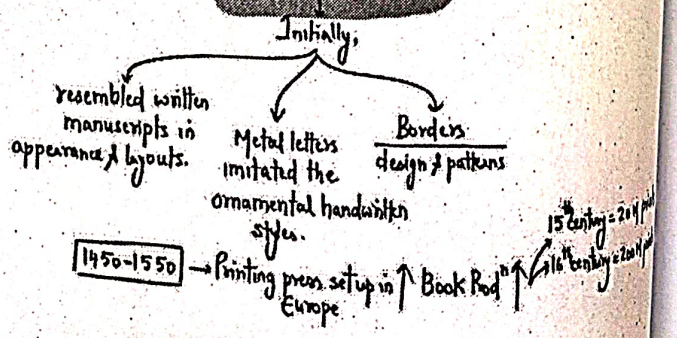 Initially,
resembled written
manuscripts in
appearance & layouts.
Metal letters
imitated the
ornamental handwritten
styles.
Borders
design & patterns
1450-1550 → Printing press setup in ↑ Book Prodⁿ ↑
Europe
15th century = 20 M print
16th century = 200 M print